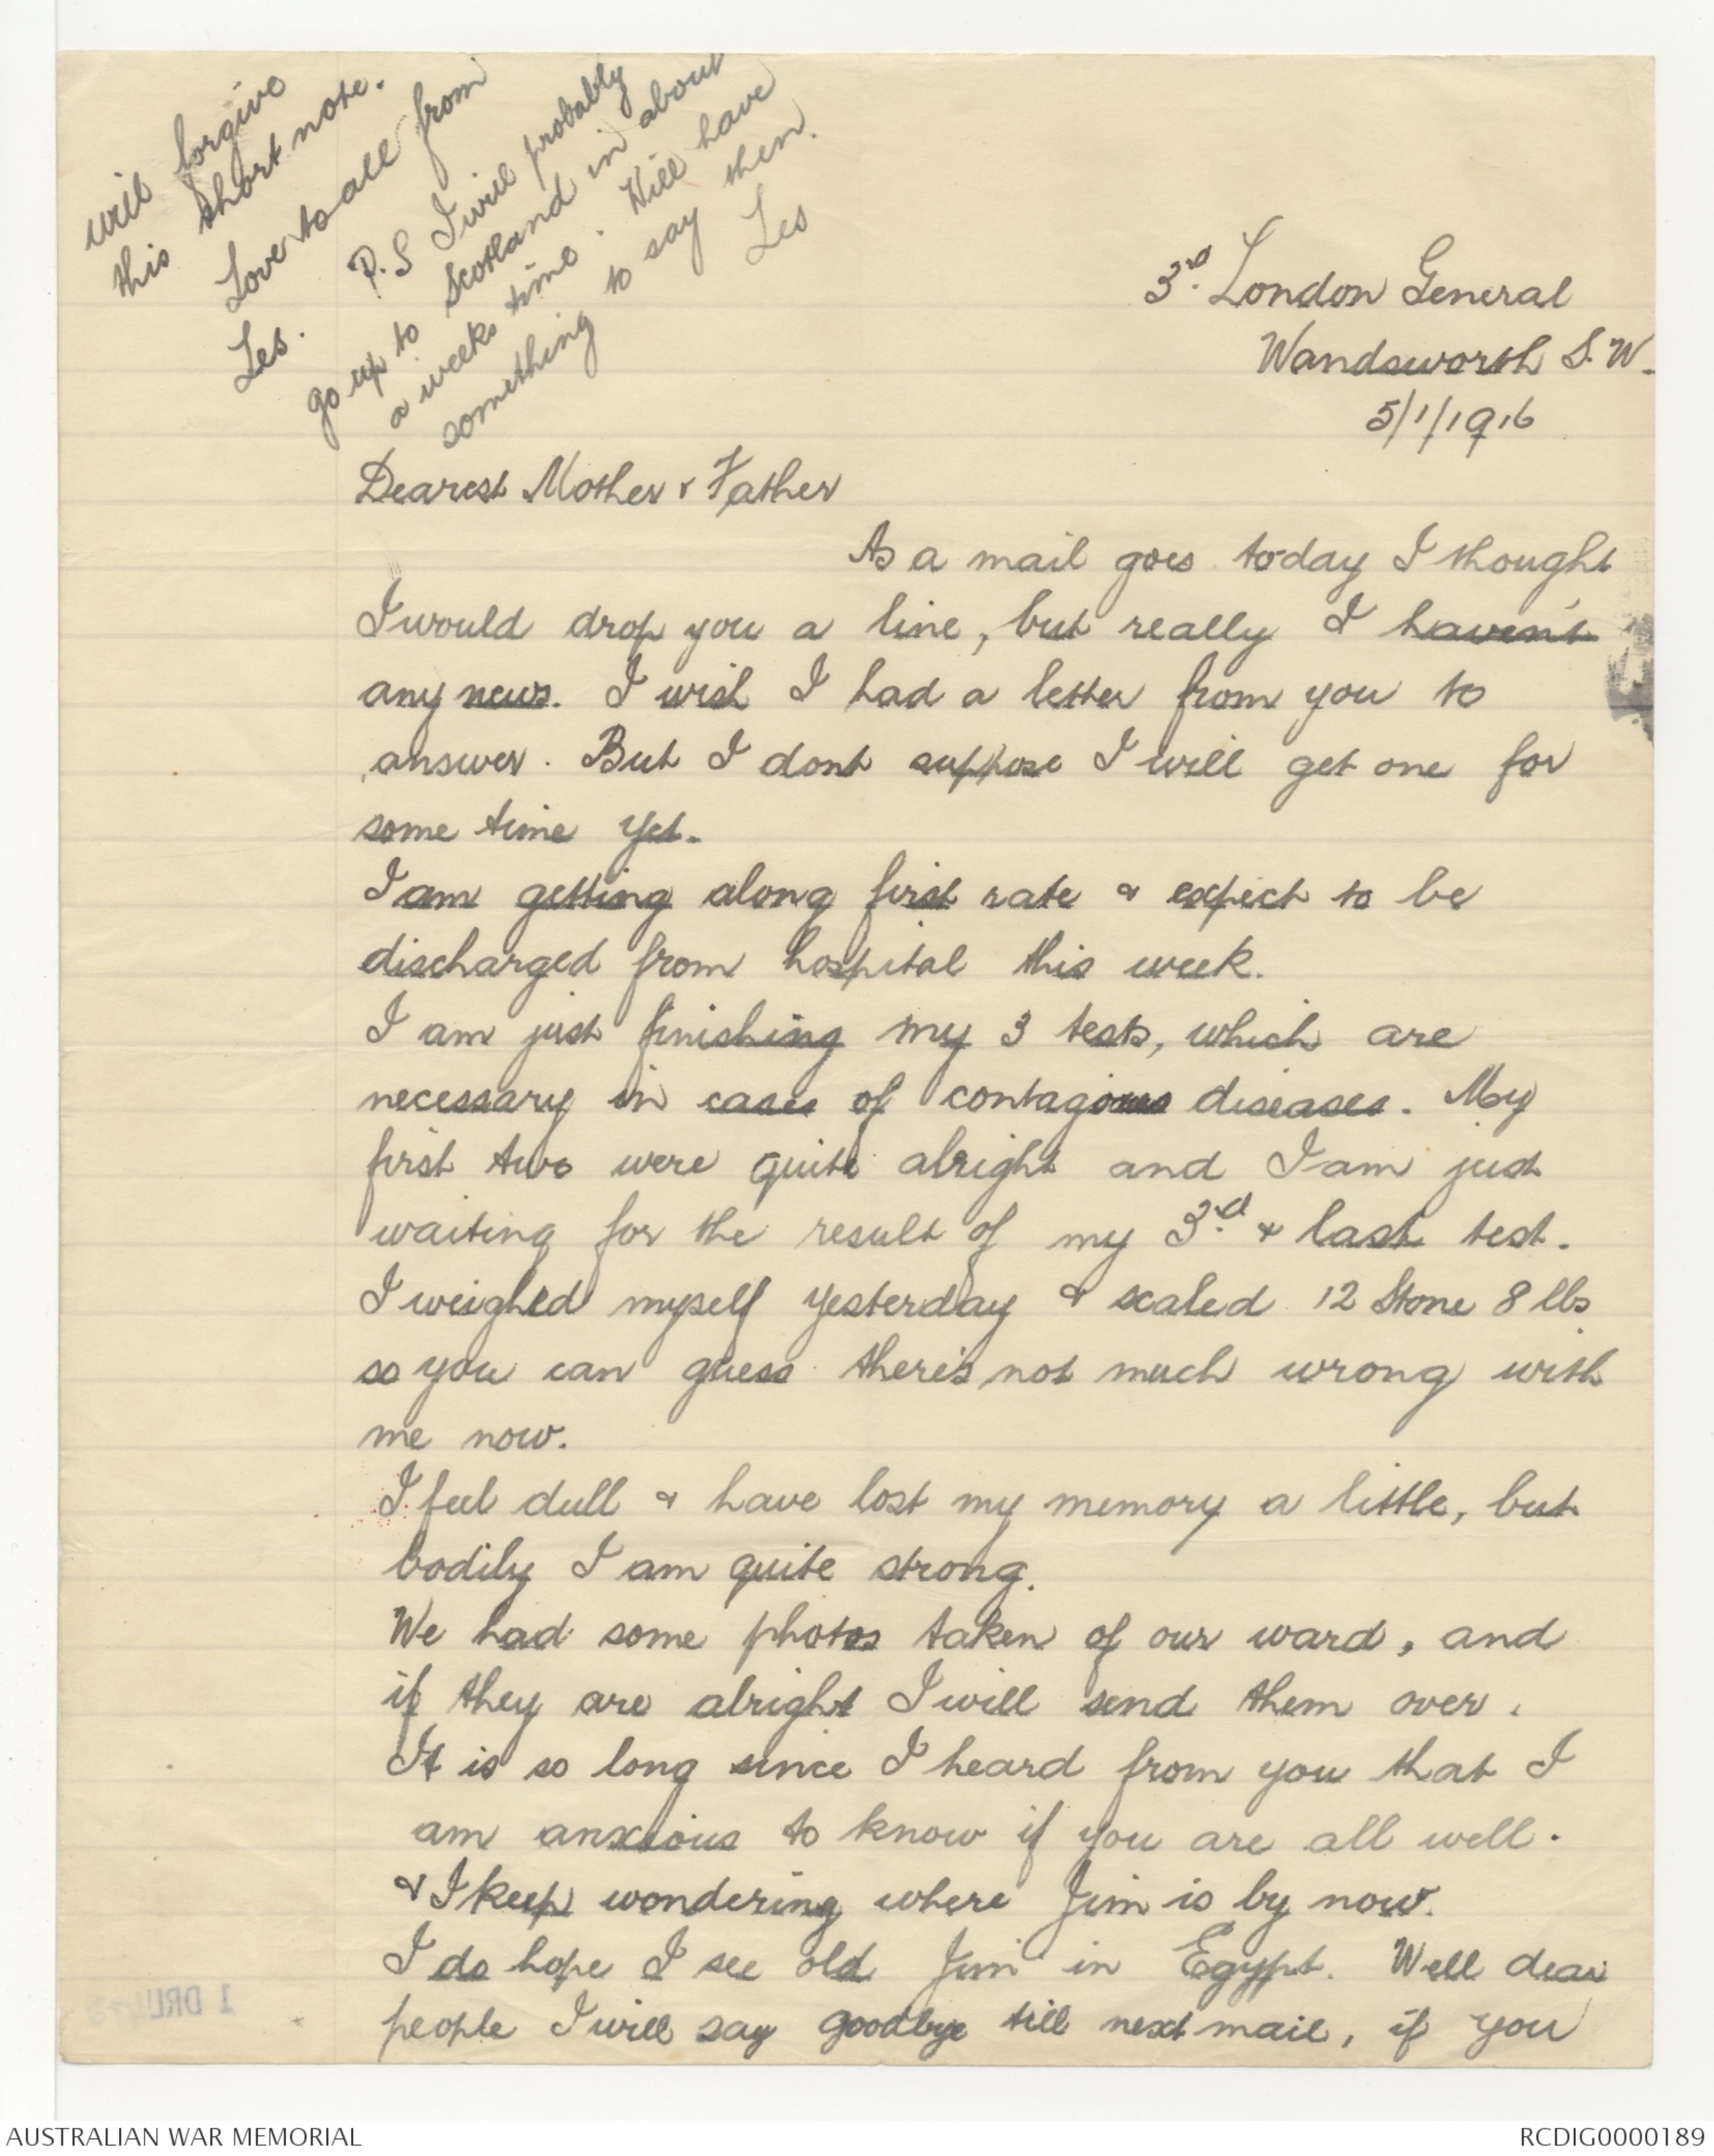 3rd. London General
Wandsworth S.W.
5/1/1916
Dearest Mother & Father
As a mail goes today I thought
I would drop you a line, but really I haven't
any news. I wish I had a letter from you to
answer. But I dont suppose I will get one for
some time yet.
I am getting along first rate & expect to be
discharged from hospital this week.
I am just finishing my 3 tests, which are
necessary in cases of contagous diseases. My
first two were quite alright and I am just
waiting for the result of my 3rd. & last test.
I weighed myself yesterday & scaled 12 Stone 8 lbs
so you can guess there's not much wrong with
me now.
I feel dull & have lost my memory a little, but
bodily I am quite strong.
We had some photos taken of our ward, and
if they are alright I will send them over.
It is so long since I heard from you that I
am anxious to know if you are all well.
& I keep wondering where Jim is by now.
I do hope I see old Jim in Egypt. Well dear
people I will say goodbye till next mail, if you
will forgive
this short note.
Love to all from
Les.
P.S I will probably
go up to Scotland in about
a weeks time. Will have
something to say then.
Les
1 DRL
AUSTRALIAN WAR MEMORIAL
RCDIG0000189